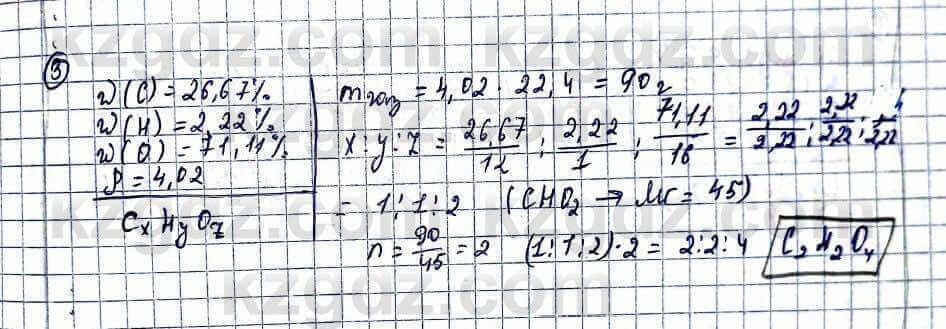 5
w(C) = 26,67%
w(H) = 2,22%
w(O) = 71,11%
ρ = 4,02
CxHyOz
mгаз = 4,02 · 22,4 = 90г
x : y : z = 26,67/12 ; 2,22/1 ; 71,11/16 = 2,22/2,22 ; 2,22/2,22 ; 4/2,22
= 1 : 1 : 2 (CHO₂ → Mr = 45)
n = 90/45 = 2 (1 : 1 : 2) · 2 = 2 : 2 : 4 C₂H₂O₄
kzgdz.com